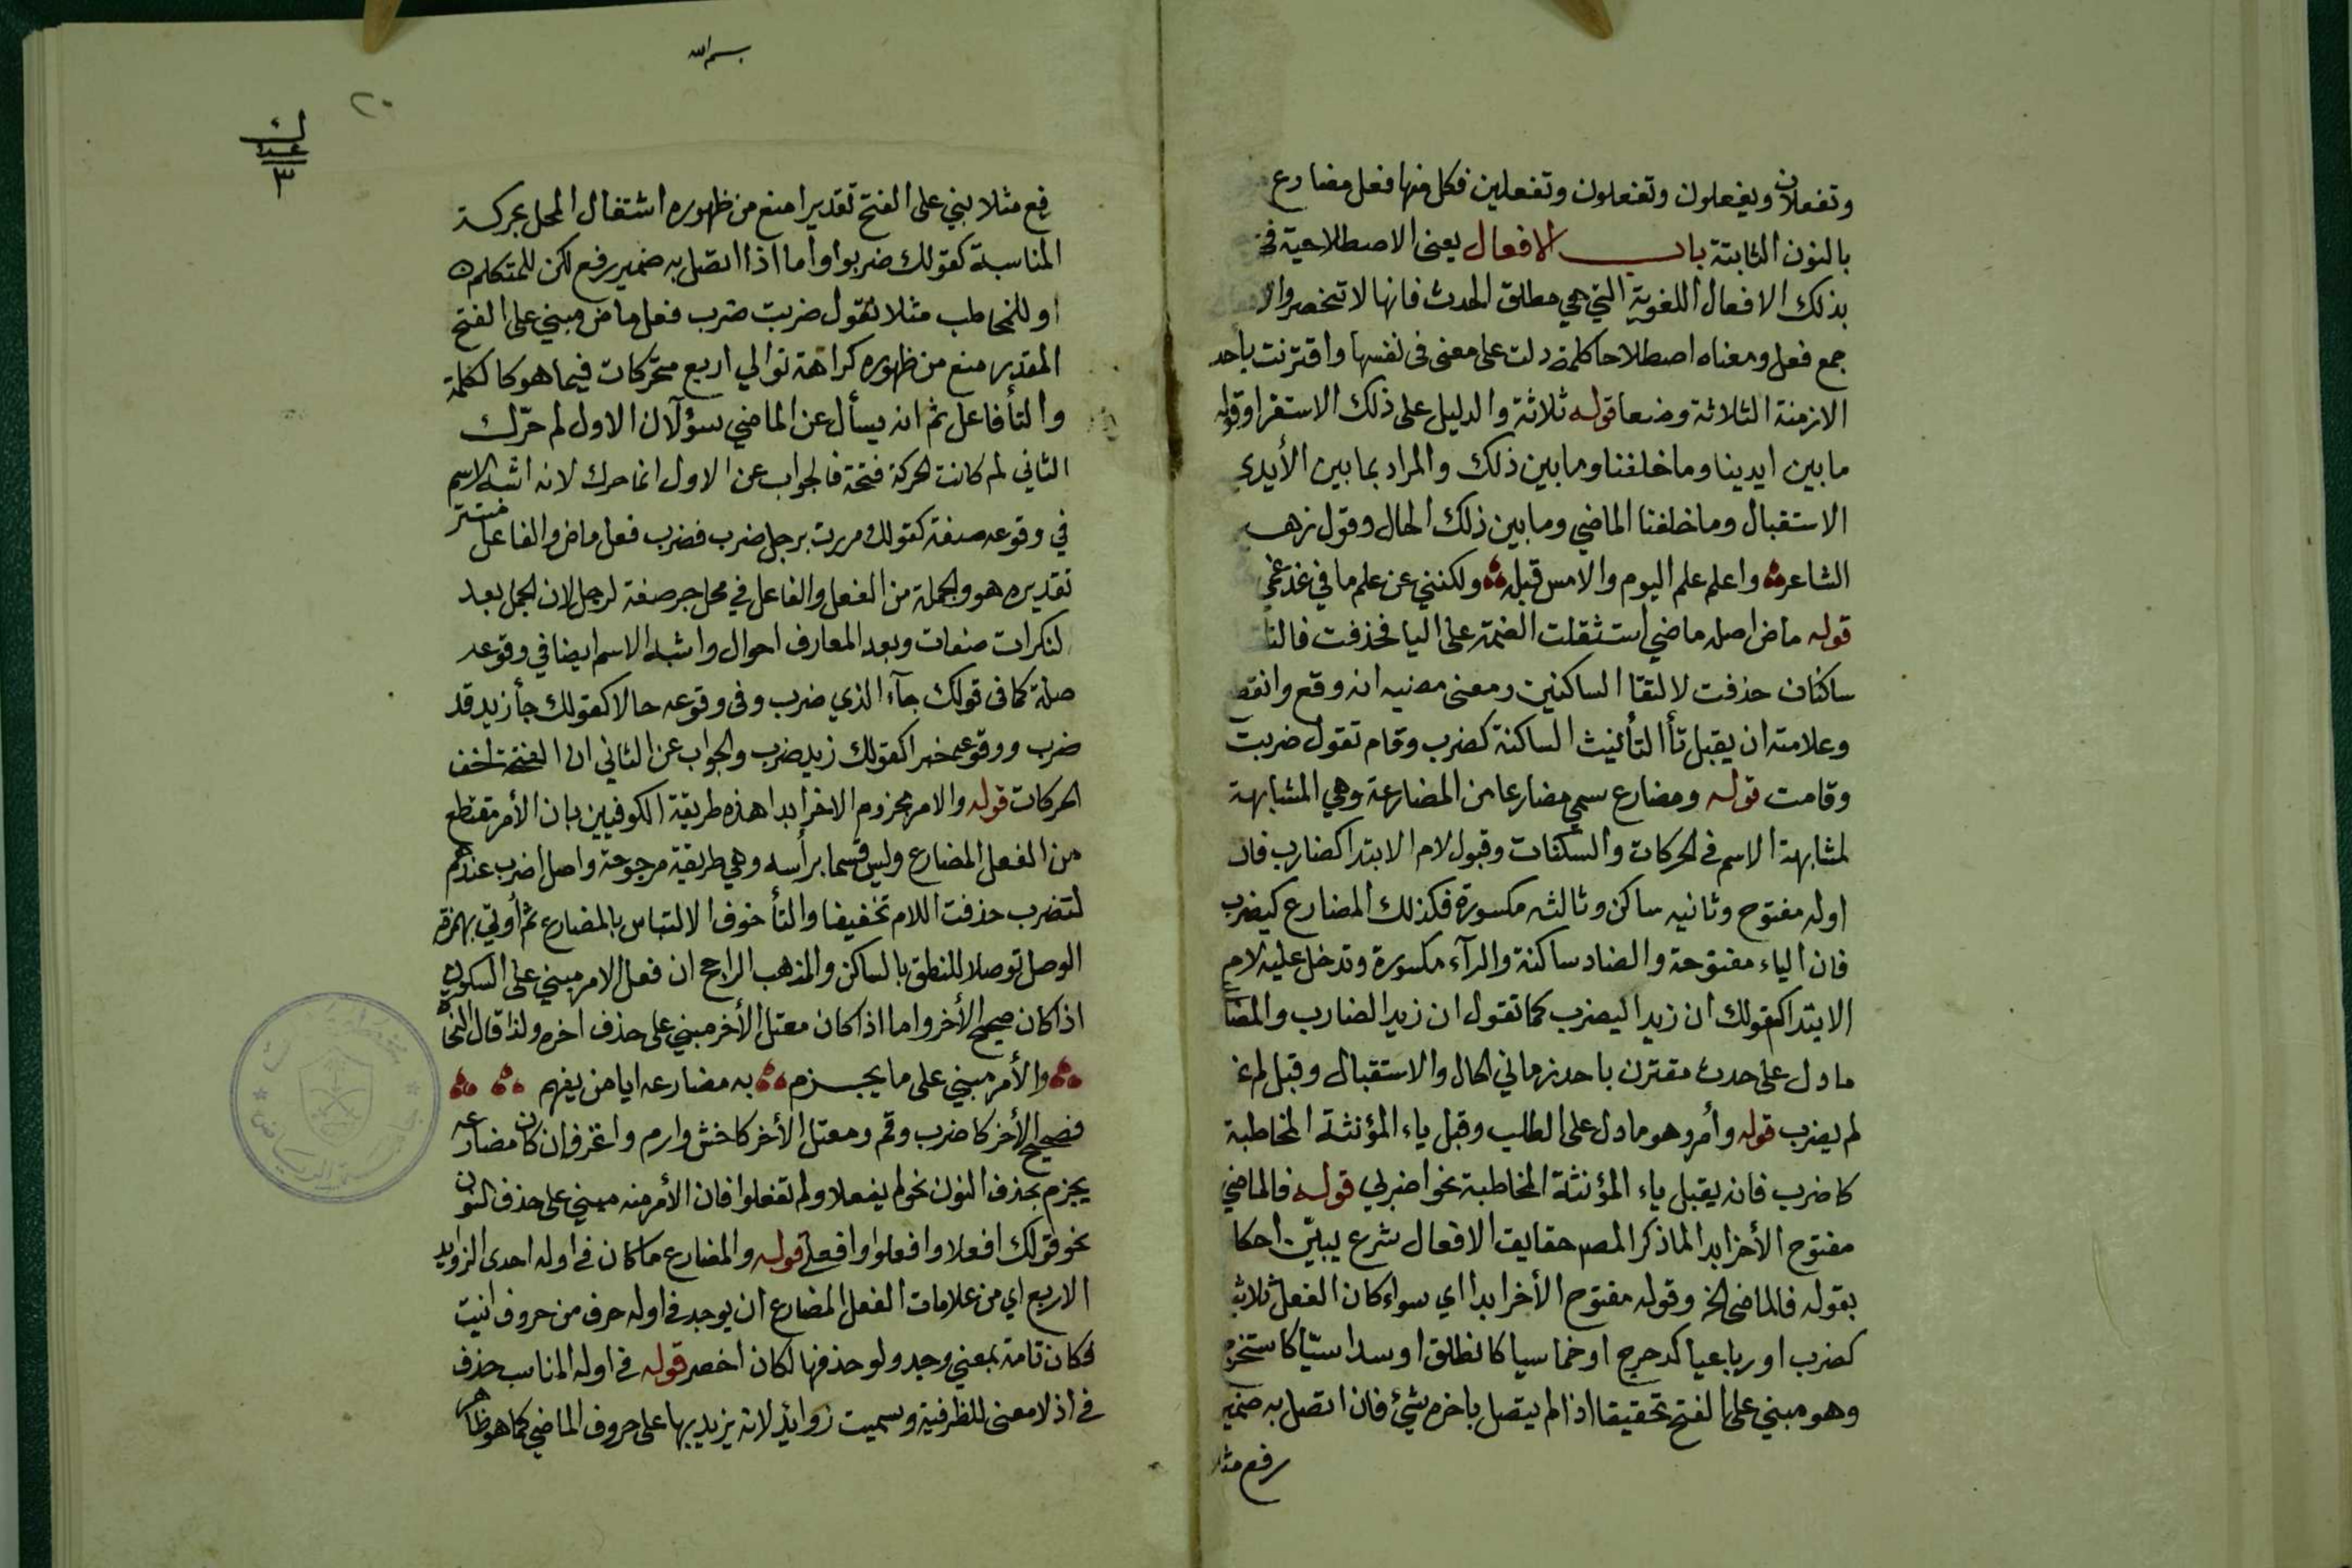 وتفعلان ويفعلون وتفعلون وتفعلين فكل منها فعل مضارع
بالنون الثابتة باب الافعال يعني الاصطلاحية
بذلك الافعال اللغوية التي هي مطلق الحدث فانها لا تنحصر
جمع فعل ومعناه اصطلاحا كلمة دلت على معنى في نفسها واقترنت بأحد
الازمنة الثلاثة وضعا قوله ثلاثة والدليل على ذلك الاستقرا وقوله
ما بين ايدينا وما خلفنا وما بين ذلك والمراد بما بين الأيدي
الاستقبال وما خلفنا الماضي وما بين ذلك الحال وقول زهير
الشاعر واعلم علم اليوم والامس قبله ولكنني عن علم ما في غد عمي
قوله ماض اصله ماضي استثقلت الضمة على اليا فحذفت فالتقا
ساكنان حذفت لالتقا الساكنين ومعنى مضيه انه وقع وانقط
وعلامته ان يقبل تأ التأنيث الساكنة كضرب وقام تقول ضربت
وقامت قوله ومضارع سمي مضارعا من المضارعة وهي المشابهة
لمشابهة الاسم في الحركات والسكنات وقبول لام الابتدا كضارب فان
اوله مفتوح وثانيه ساكن وثالثه مكسورة فكذلك المضارع كيضرب
فان الياء مفتوحة والضاد ساكنة والرآء مكسورة وتدخل عليه لام
الابتدا كقولك ان زيدا ليضرب كما تقول ان زيدا لضارب والمضا
ما دل على حدث مقترن باحد زماني الحال والاستقبال وقبل لم نحو
لم يضرب قوله وأمر وهو ما دل على الطلب وقبل ياء المؤنثة المخاطبة
كاضرب فانه يقبل ياء المؤنثة المخاطبة نحو اضربي قوله فالماضي
مفتوح الأخر ابدا لما ذكر المصـ حقايق الافعال شرع يبيّن احكا
بقوله فالماضي الخ وقوله مفتوح الأخر ابدا اي سواء كان الفعل ثلاثيا
كضرب او رباعيا كدحرج او خماسيا كانطلق او سداسيّا كاستخرج
وهو مبني على الفتح تحقيقا اذا لم يتصل باخره شئ فان اتصل به ضمير
رفع مثلا
بسم الله
٢٠
٣
رفع مثلا بني على الفتح تقديرا منع من ظهوره اشتغال المحل بحركة
المناسبة كقولك ضربوا واما اذا اتصل به ضمير رفع لكن للمتكلم
او للمخاطب مثلا تقول ضربت ضرب فعل ماض مبني على الفتح
المقدر منع من ظهوره كراهة توالي اربع متحركات فيما هو كالكلمة
والتأ فاعل ثم انه يسأل عن الماضي سؤلآن الاول لم حرّك
الثاني لم كانت الحركة فتحة فالجواب عن الاول انما حرك لانه اشبه الاسم
في وقوعه صفة كقولك مررت برجل ضرب فضرب فعل ماض والفاعل مستتر
تقديره هو والجملة من الفعل والفاعل في محل جر صفة لرجل لان الجمل بعد
لنكرات صفات وبعد المعارف احوال واشبه الاسم ايضا في وقوعه
صلة كما في قولك جآء الذي ضرب وفي وقوعه حالا كقولك جأ زيد قد
ضرب ووقوعه خبرا كقولك زيد ضرب والجواب عن الثاني ان الفتحة اخف
الحركات قوله والامر مجزوم الاخر ابدا هذه طريقة الكوفيين بان الأمر مقتطع
من الفعل المضارع وليس قسما برأسه وهي طريقة مرجوحة واصل اضرب عندهم
لتضرب حذفت اللام تخفيفا والتأ خوف الالتباس بالمضارع ثم أوتي بهمزة
الوصل توصلا للنطق بالساكن والمذهب الراجح ان فعل الامر مبني على السكون
اذا كان صحيح الأخر واما اذا كان معتل الأخر مبني على حذف اخره ولذا قال النحاة
والأمر مبني على ما يجزم به مضارعه ايا من يفهم
فصحيح الأخر كاضرب وقم ومعتل الأخر كاخش وارم واغز فإن كان مضارعه
يجزم بحذف النون نحو لم يفعلا ولم تفعلوا فان الأمر منه مبني على حذف النون
نحو قولك افعلا وافعلوا وافعلي قوله والمضارع ما كان في اوله احدى الزوايد
الاربع اي من علامات الفعل المضارع ان يوجد في اوله حرف من حروف انيت
فكان تامة بمعني وجد ولو حذفها لكان اخصر قوله في اوله المناسب حذف
في اذ لا معنى للظرفية وسميت زوائد لانه يزيد بها على حروف الماضي كما هو ظاهر